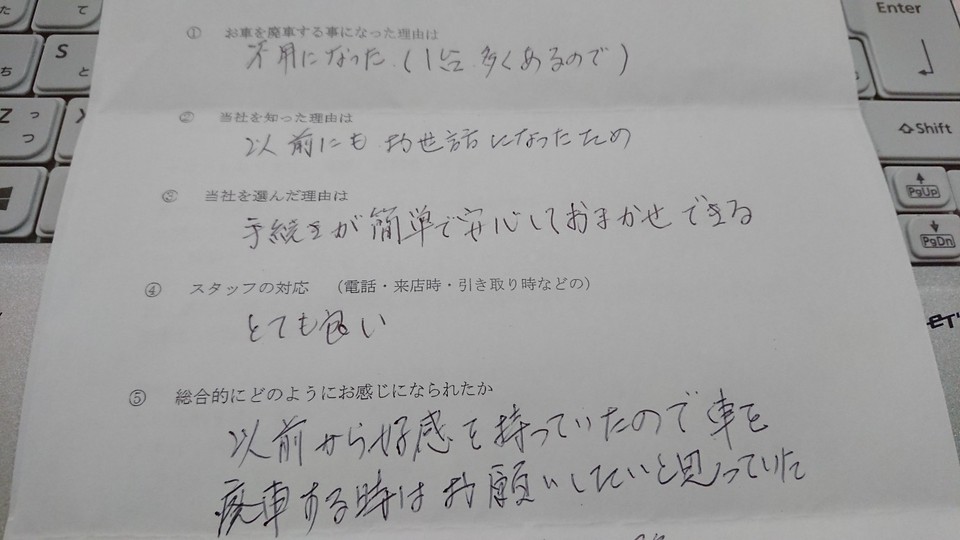 ① お車を廃車する事になった理由は
不用になった.(1台 多くあるので)
② 当社を知った理由は
以前にも お世話になったため
③ 当社を選んだ理由は
手続きが簡単で安心しておまかせできる
④ スタッフの対応 (電話・来店時・引き取り時などの)
とても良い
⑤ 総合的にどのようにお感じになられたか
以前から好感を持っていたので車を
廃車する時はお願いしたいと思っていた
た
て
S
と
ち
Z っ
つ
Enter
Shift
PgUp
PgDn